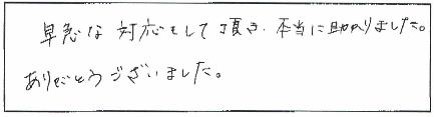 早急な対応をして頂き、本当に助かりました。
ありがとうございました。